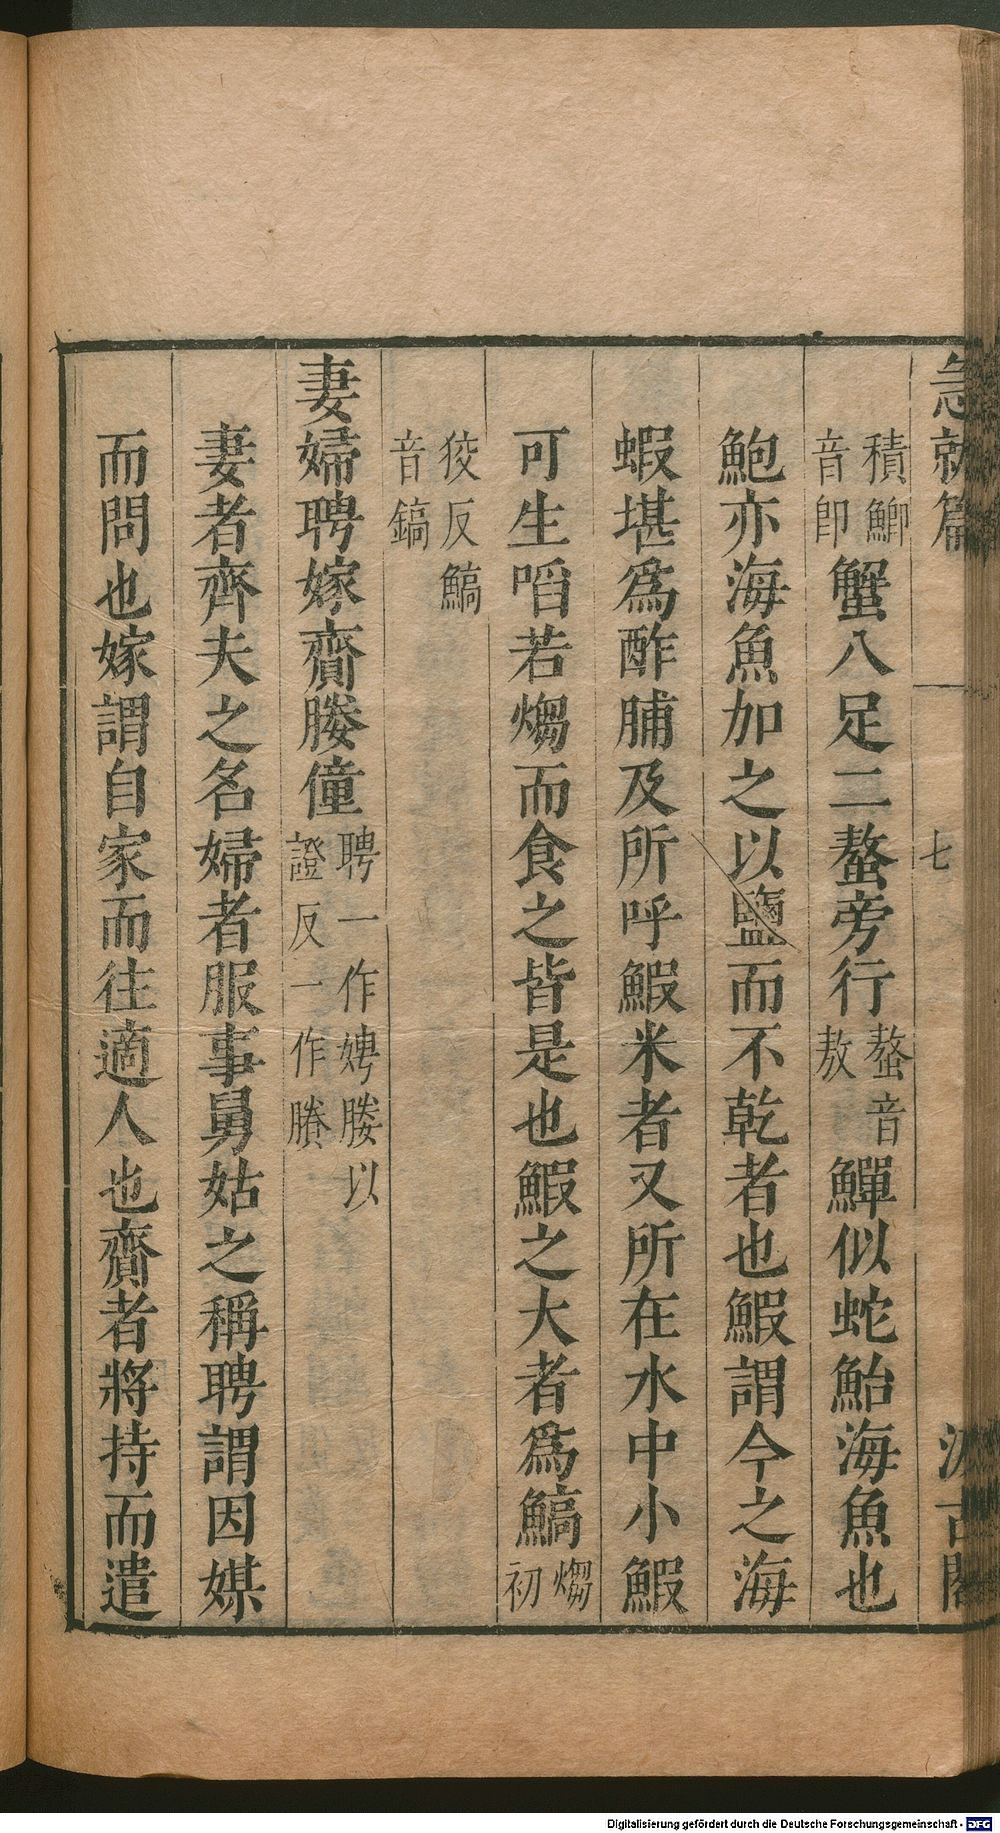 急就篇 七 汲古閣
積鯽音卽蟹八足二螯旁行螯音敖鱓似蛇鮐海魚也
鮑亦海魚加之以鹽而不乾者也鰕謂今之海
蝦堪爲酢脯及所呼鰕米者又所在水中小鰕
可生啗若煼而食之皆是也鰕之大者爲鰝煼初
狡反鰝音鎬
妻婦聘嫁齎媵僮聘一作娉媵以證反一作賸
妻者齊夫之名婦者服事舅姑之稱聘謂因媒
而問也嫁謂自家而往適人也齎者將持而遣
Digitalisierung gefördert durch die Deutsche Forschungsgemeinschaft - DFG